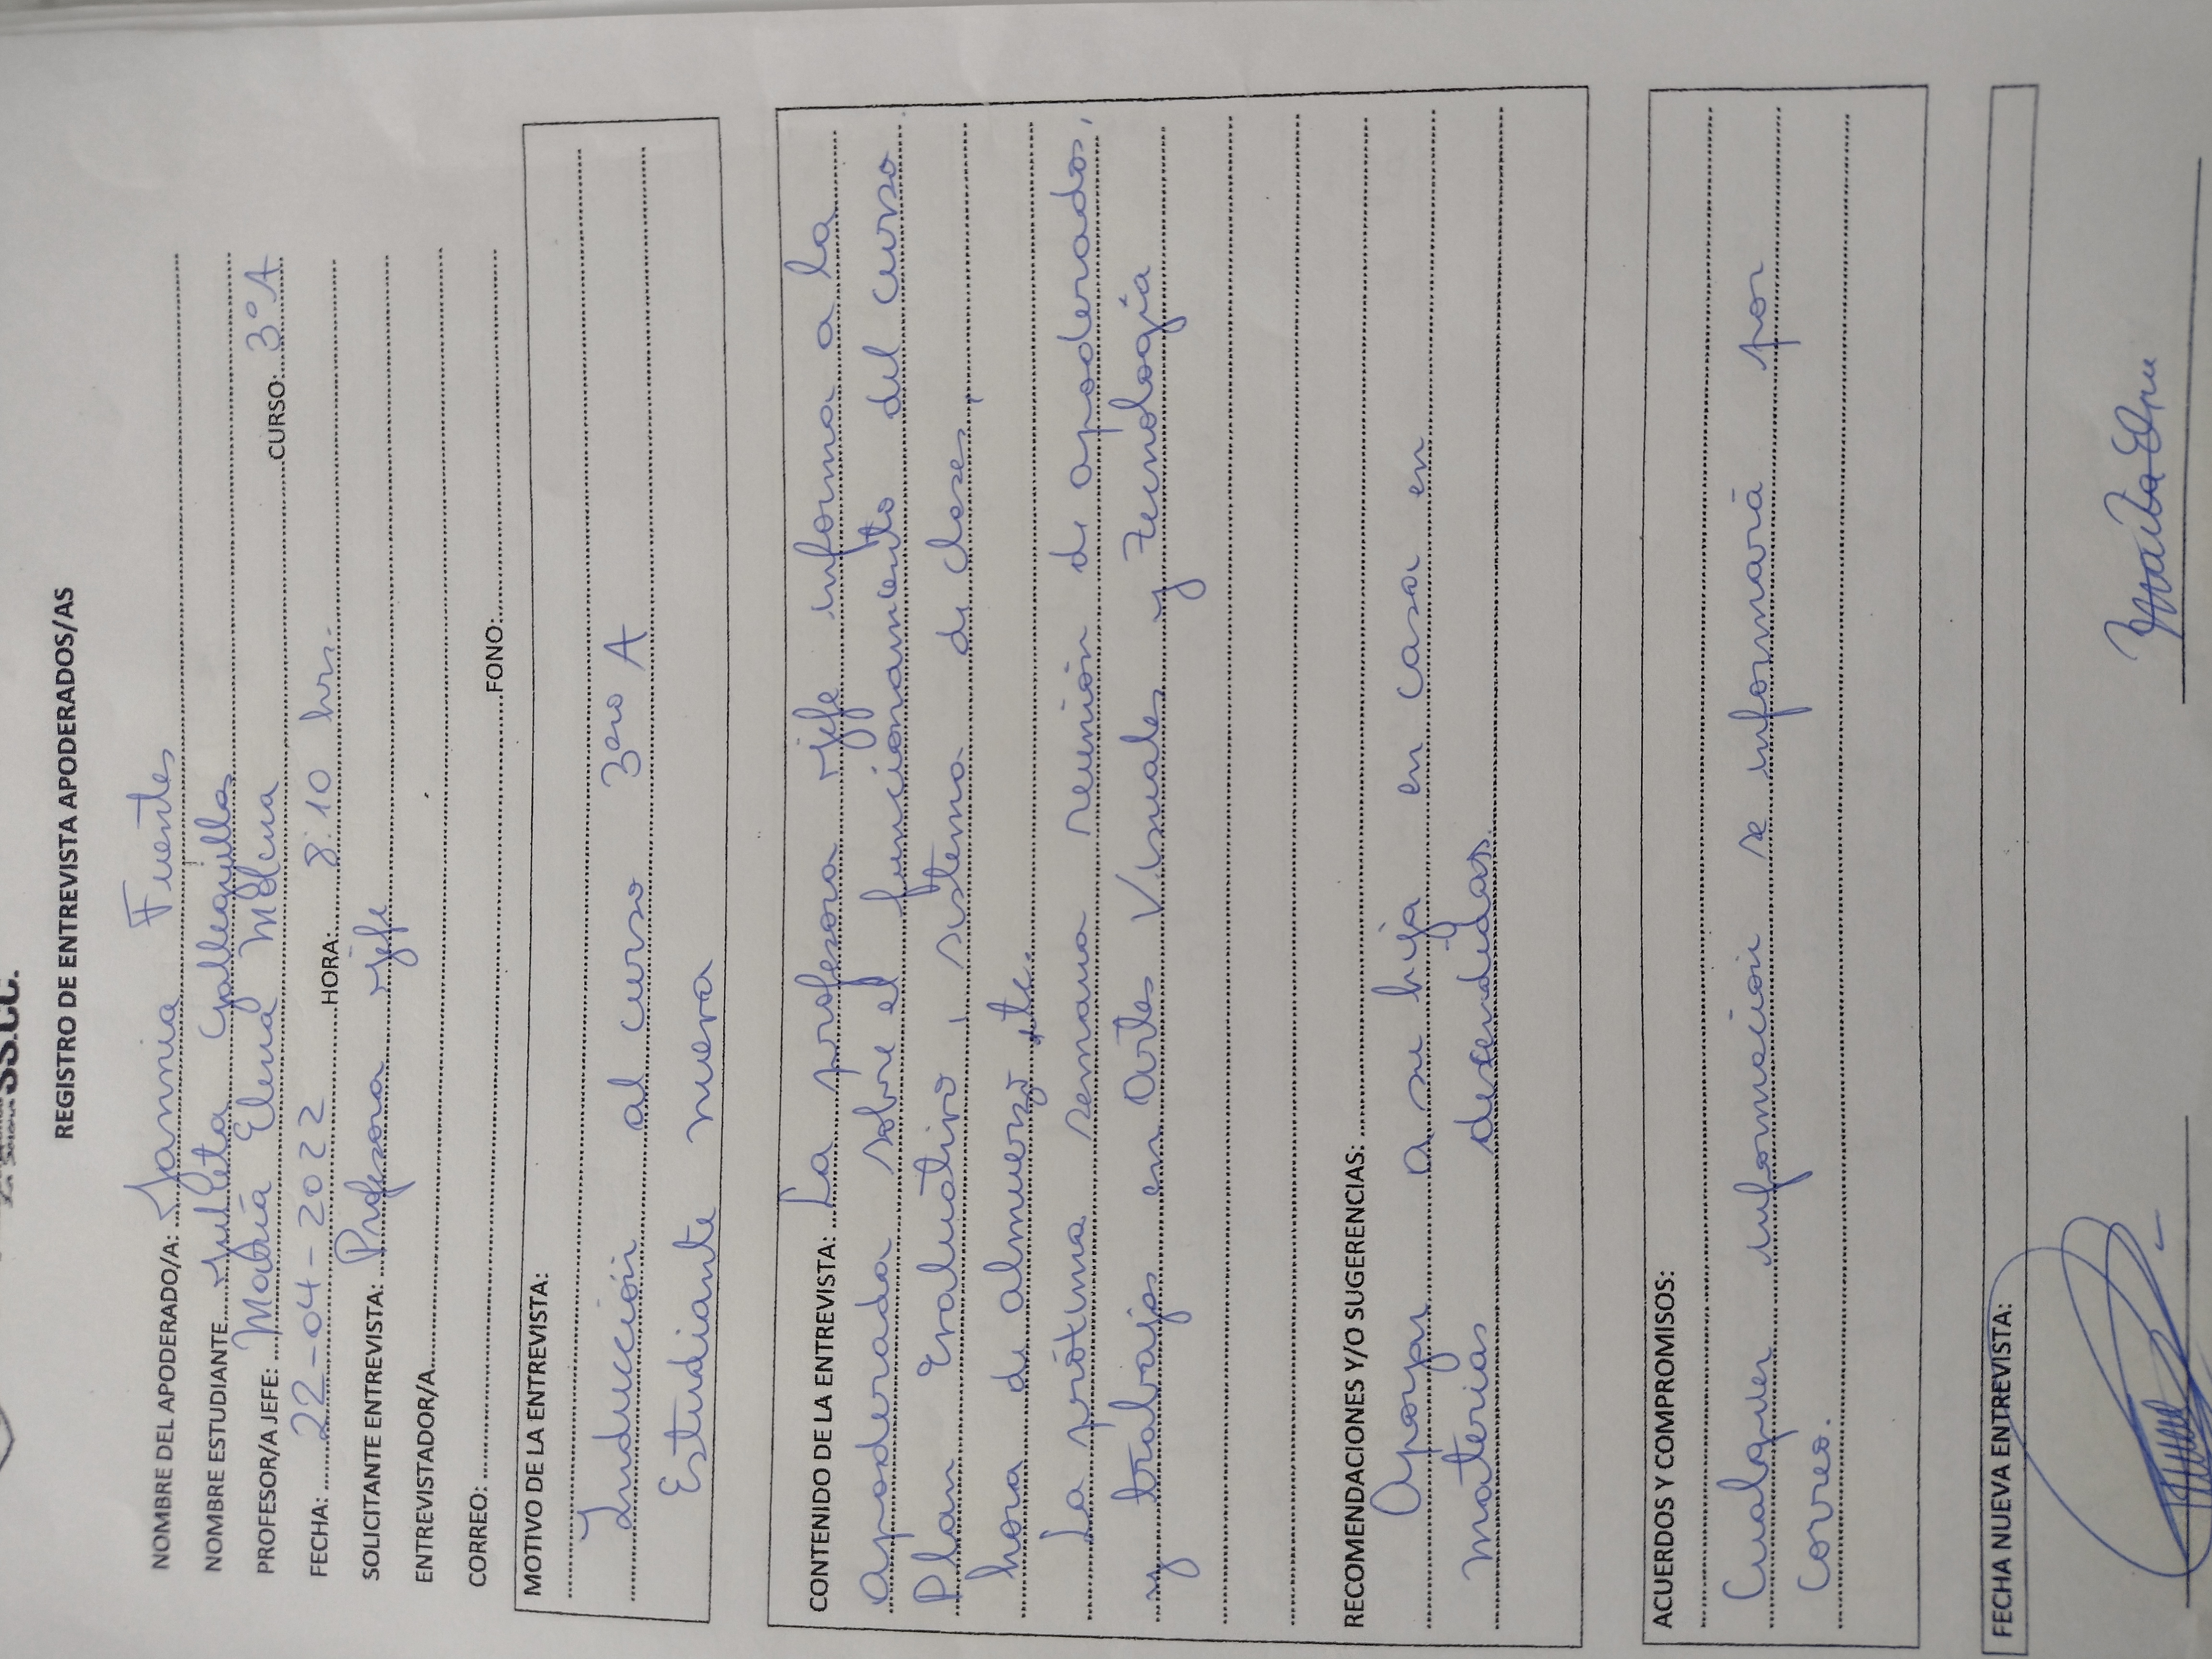 SS.CC.
REGISTRO DE ENTREVISTA APODERADOS/AS
NOMBRE DEL APODERADO/A: Jannia Fuentes
NOMBRE ESTUDIANTE Julieta Galleguillos
PROFESOR/A JEFE: María Elena Mena CURSO: 3º A
FECHA: 22-04-2022 HORA: 8.10 hrs.
SOLICITANTE ENTREVISTA: Profesora jefe
ENTREVISTADOR/A
CORREO: FONO:
MOTIVO DE LA ENTREVISTA:
Inducción al curso 3ero A
Estudiante nueva
CONTENIDO DE LA ENTREVISTA: La profesora jefe informa a la
apoderada sobre el funcionamiento del curso
Plan Evaluativo, sistema de clases,
hora de almuerzo, etc.
La próxima semana reunión de apoderados,
y trabajos en Artes Visuales y Tecnología
RECOMENDACIONES Y/O SUGERENCIAS:
Apoyar a su hija en casa en
materias descendidas.
ACUERDOS Y COMPROMISOS:
Cualquier información se informará por
correo.
FECHA NUEVA ENTREVISTA: